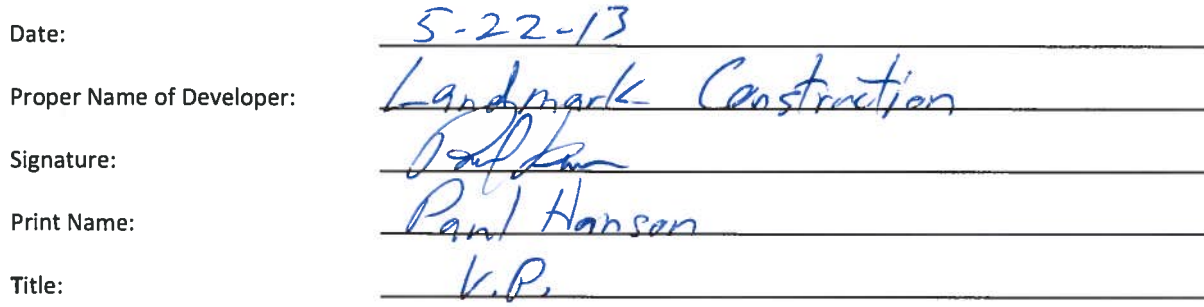 Date: 5-22-13
Proper Name of Developer: Landmark Construction
Signature:
Print Name: Paul Hanson
Title: V.P.